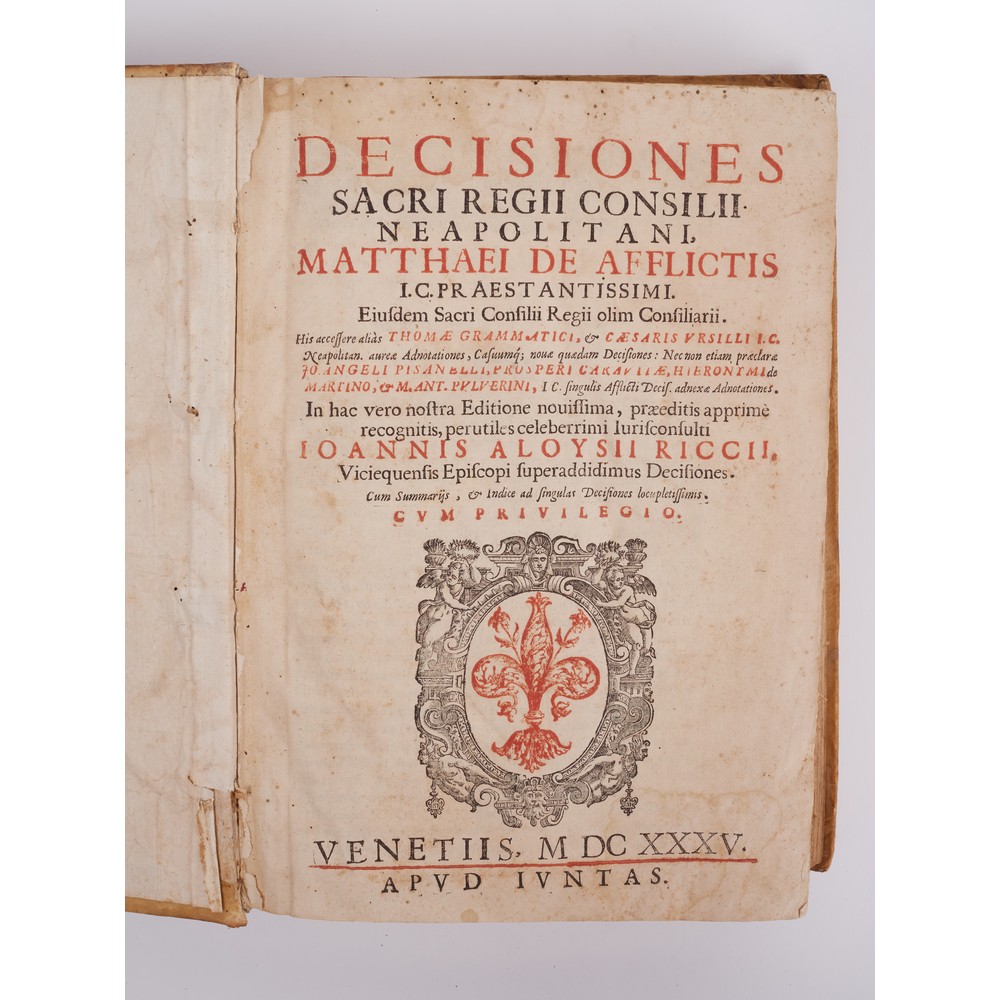 DECISIONES
SACRI REGII CONSILII
NEAPOLITANI,
MATTHAEI DE AFFLICTIS
I.C. PRAESTANTISSIMI.
Eiuſdem Sacri Conſilii Regii olim Conſiliarii.
His acceſſere aliàs THOMÆ GRAMMATICI, & CÆSARIS VRSILLI I.C.
Neapolitan. aureæ Adnotationes, Caſuumq; nouæ quædam Deciſiones: Nec non etiam præclaræ
JO. ANGELI PISANELLI, PROSPERI CARAVITÆ, HIERONYMI de
MARTINO, & M. ANT. PVLVERINI, I C. ſingulis Afflicti Deciſ. adnexæ Adnotationes.
In hac vero noſtra Editione nouiſſima, præeditis apprimè
recognitis, perutiles celeberrimi Iuriſconſulti
IOANNIS ALOYSII RICCII,
Viciequenſis Epiſcopi ſuperaddidimus Deciſiones.
Cum Summarijs, & Indice ad ſingulas Deciſiones locupletiſſimis.
CVM PRIVILEGIO.
VENETIIS, M DC XXXV.
APVD IVNTAS.